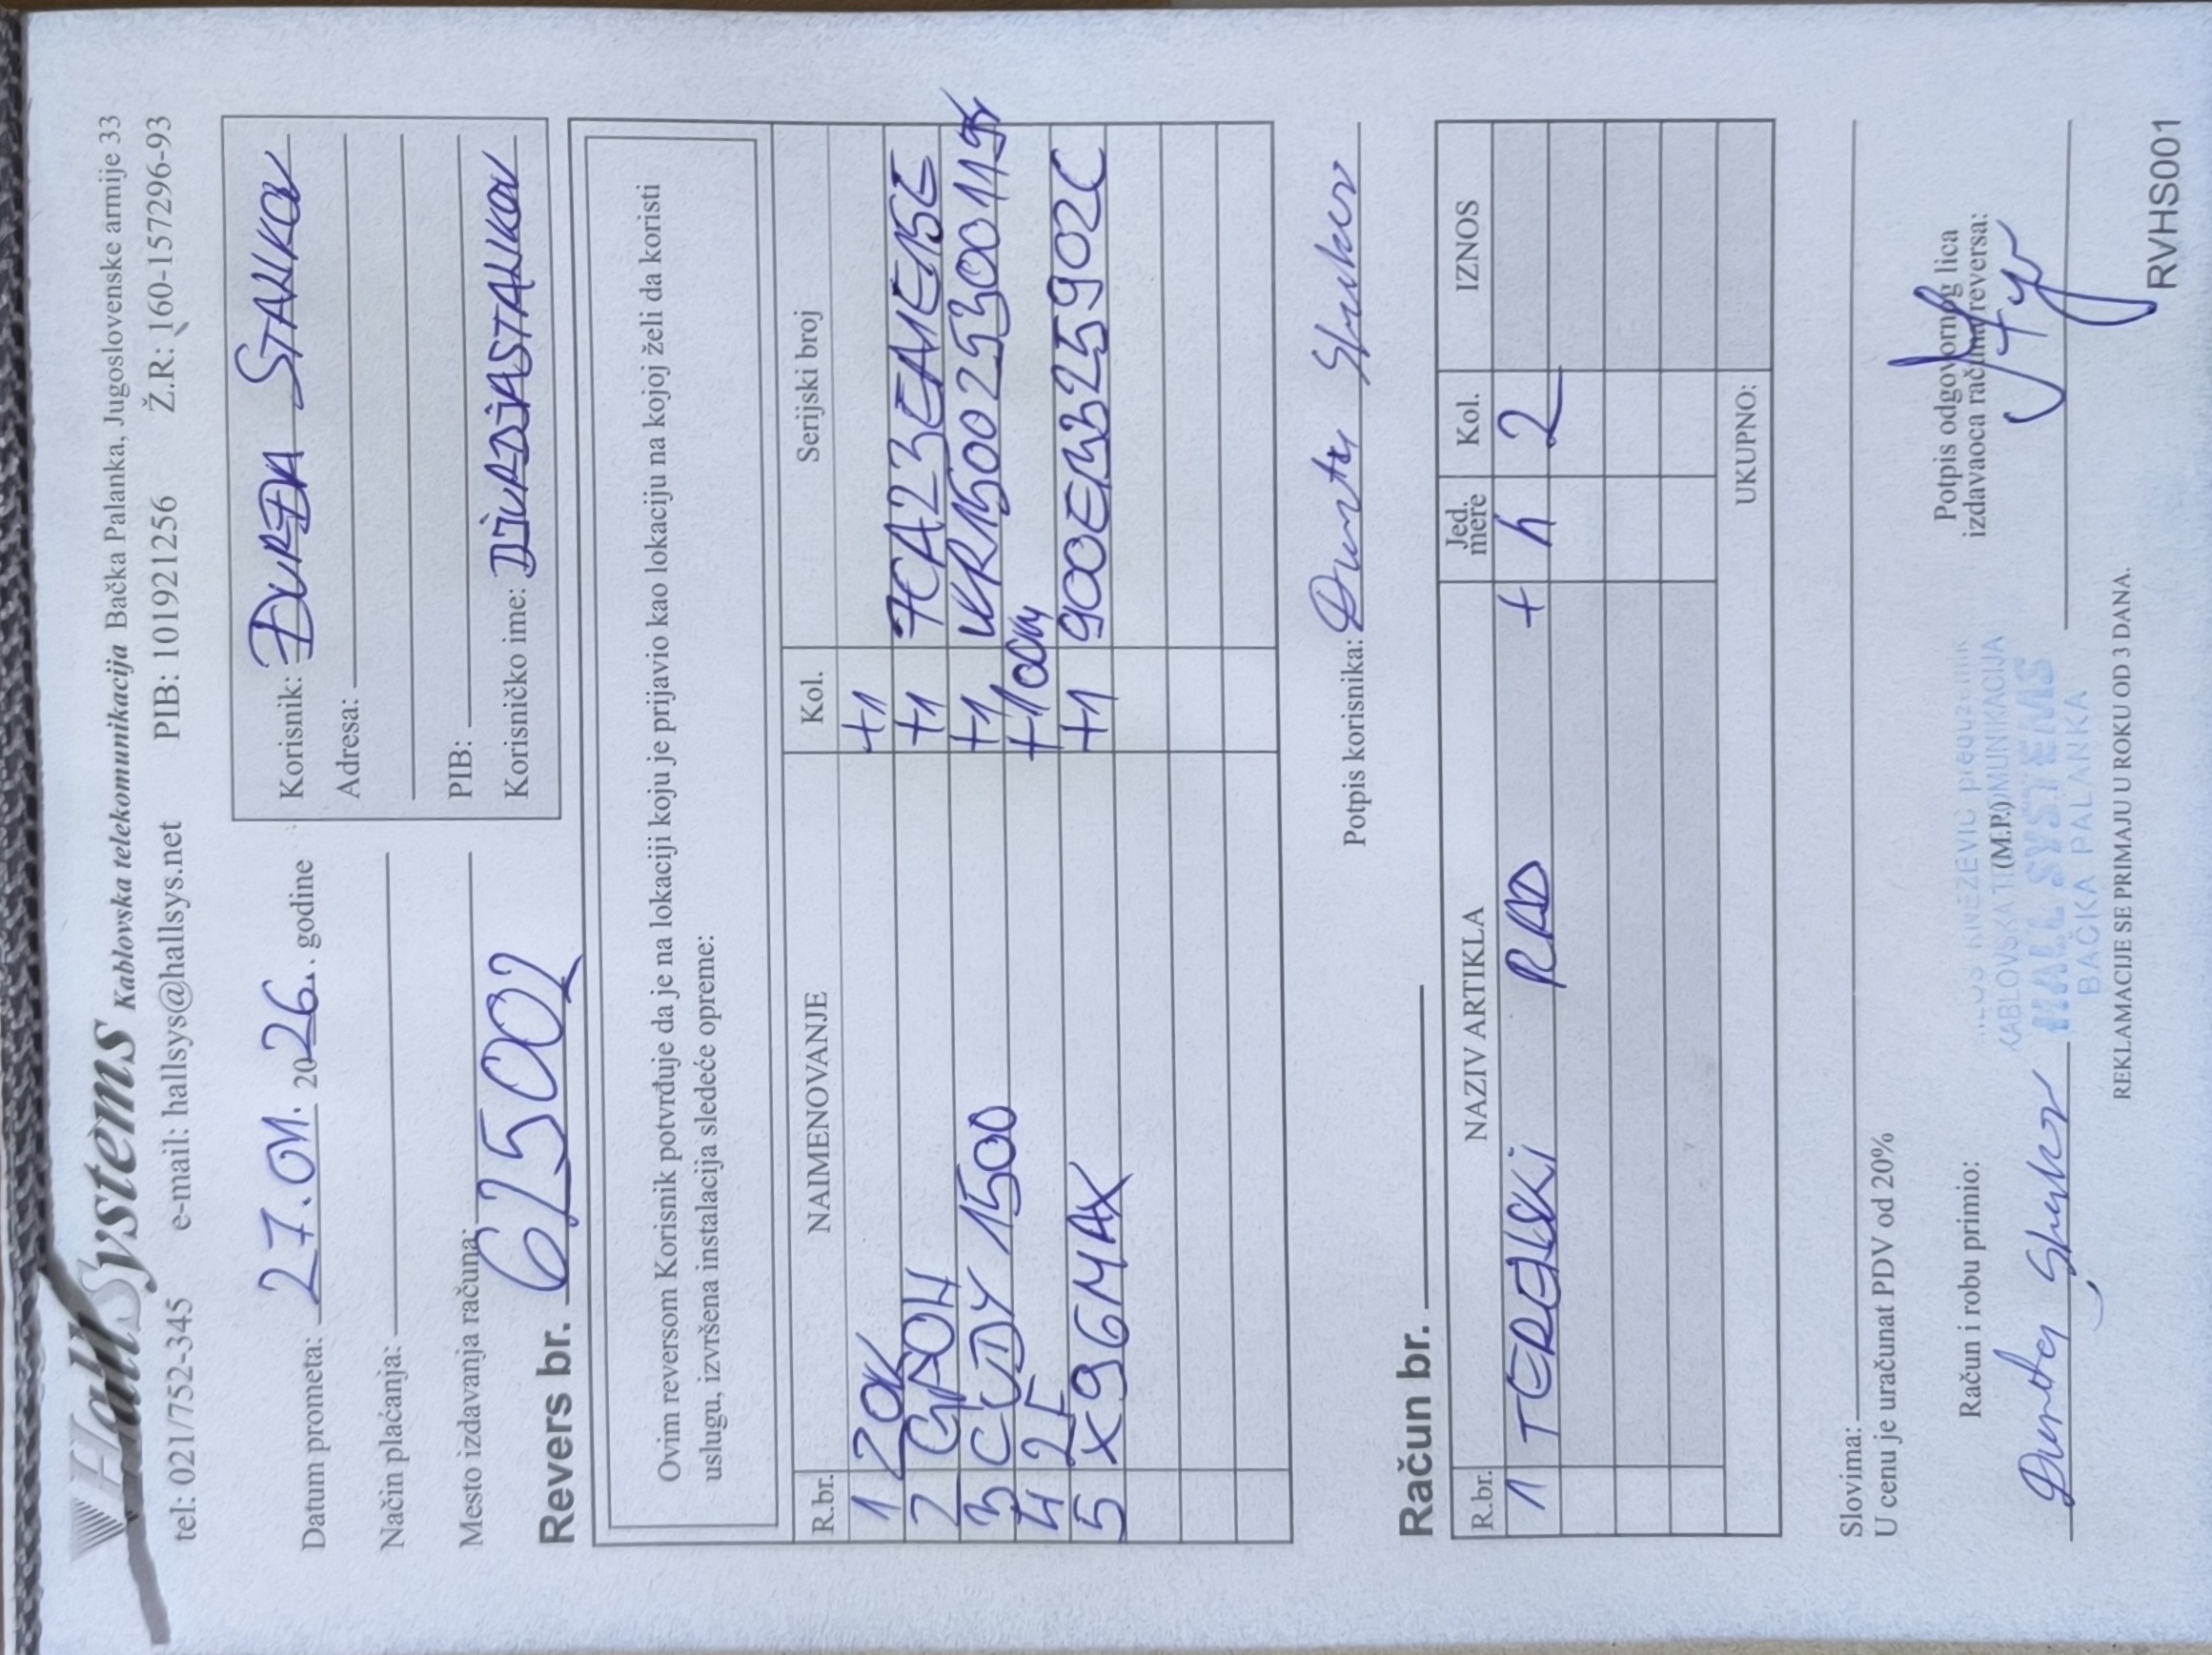 HallSystems Kablovska telekomunikacija Bačka Palanka, Jugoslovenske armije 33
tel: 021/752-345 e-mail: hallsys@hallsys.net PIB: 101921256 Ž.R: 160-157296-93
Datum prometa: 27.01. 2026. godine
Način plaćanja:
Mesto izdavanja računa:
Korisnik: ĐURĐA STALKOV
Adresa:
PIB:
Korisničko ime: DJURDJASTALKOV
Revers br. 625002
Ovim reversom Korisnik potvrđuje da je na lokaciji koju je prijavio kao lokaciju na kojoj želi da koristi
uslugu, izvršena instalacija sledeće opreme:
R.br. NAIMENOVANJE Kol. Serijski broj
1 ZOK +1
2 GPON +1 7CA23EA1E15E
3 CUDY 1500 +1
4 2F +100m
5 X96MAX +1 900EB325902C
Potpis korisnika:
Račun br.
R.br. NAZIV ARTIKLA Jed. mere Kol. IZNOS
1 TERENSKI RAD + h 2
UKUPNO:
Slovima:
U cenu je uračunat PDV od 20%
Račun i robu primio:
(M.P.)
KABLOVSKA TELEKOMUNIKACIJA
HALL SYSTEMS
BAČKA PALANKA
Potpis odgovornog lica
izdavaoca računa/reversa:
REKLAMACIJE SE PRIMAJU U ROKU OD 3 DANA.
RVHS001